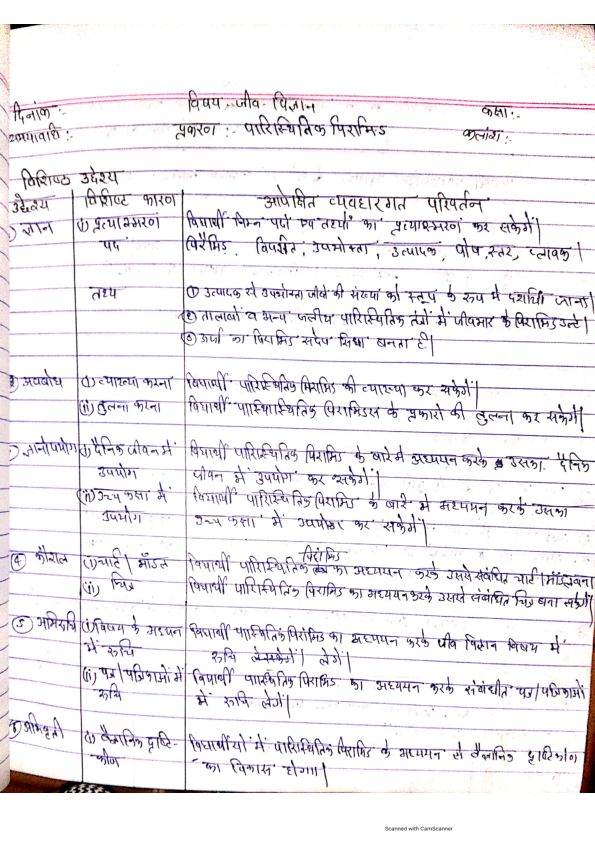 दिनांक :-
विषय :- जीव - विज्ञान
कक्षा :-
समयावधि :-
प्रकरण :- पारिस्थितिक पिरामिड
कालांश :-
विशिष्ठ उद्देश्य
उद्देश्य विशिष्ट कारण अपेक्षित व्यवहारगत परिवर्तन
ज्ञान (i) प्रत्यास्मरण विद्यार्थी निम्न पदों एवं तथ्यों का प्रत्यास्मरण कर सकेगें।
पद पिरैमिड, विपरीत, उपभोक्ता, उत्पादक, पोष स्तर, प्लावक।
तथ्य ① उत्पादक से उपभोक्ता जीवों की संख्या को स्तूप के रूप में दर्शाया जाना।
② तालाबों व अन्य जलीय पारिस्थितिक तंत्रों में जीवभार के पिरामिड उल्टे।
③ ऊर्जा का पिरामिड सदैव सिधा बनता है।
अवबोध (i) व्याख्या करना विद्यार्थी पारिस्थितिक पिरामिड की व्याख्या कर सकेगें।
(ii) तुलना करना विद्यार्थी पारिस्थितिक पिरामिडस के प्रकारो की तुलना कर सकेगें।
ज्ञानोपयोग (i) दैनिक जीवन में विद्यार्थी पारिस्थितिक पिरामिड के बारे में अध्ययन करके उसका दैनिक
उपयोग जीवन में उपयोग कर सकेगें।
(ii) उच्च कक्षा में विद्यार्थी पारिस्थितिक पिरामिड के बारे में अध्ययन करके उसका
उपयोग उच्च कक्षा में उपयोग कर सकेगें।
④ कौशल (i) चार्ट / मॉडल विद्यार्थी पारिस्थितिक पिरामिड का अध्ययन करके उससे संबंधित चार्ट / मॉडल बना
(ii) चित्र विद्यार्थी पारिस्थितिक पिरामिड का अध्ययन करके उससे संबंधित चित्र बना सकेगें
⑤ अभिरुचि (i) विषय के अध्ययन विद्यार्थी पारिस्थितिक पिरामिड का अध्ययन करके जीव विज्ञान विषय में
में रुचि रुचि लेगें।
(ii) पत्र / पत्रिकाओं में विद्यार्थी पारिस्थितिक पिरामिड का अध्ययन करके संबंधीत पत्र / पत्रिकाओं
रुचि में रुचि लेगें।
अभिवृती (i) वैज्ञानिक दृष्टि- विद्यार्थीयों में पारिस्थितिक पिरामिड के अध्ययन से वैज्ञानिक दृष्टिकोण
कोण का विकास होगा।
Scanned with CamScanner